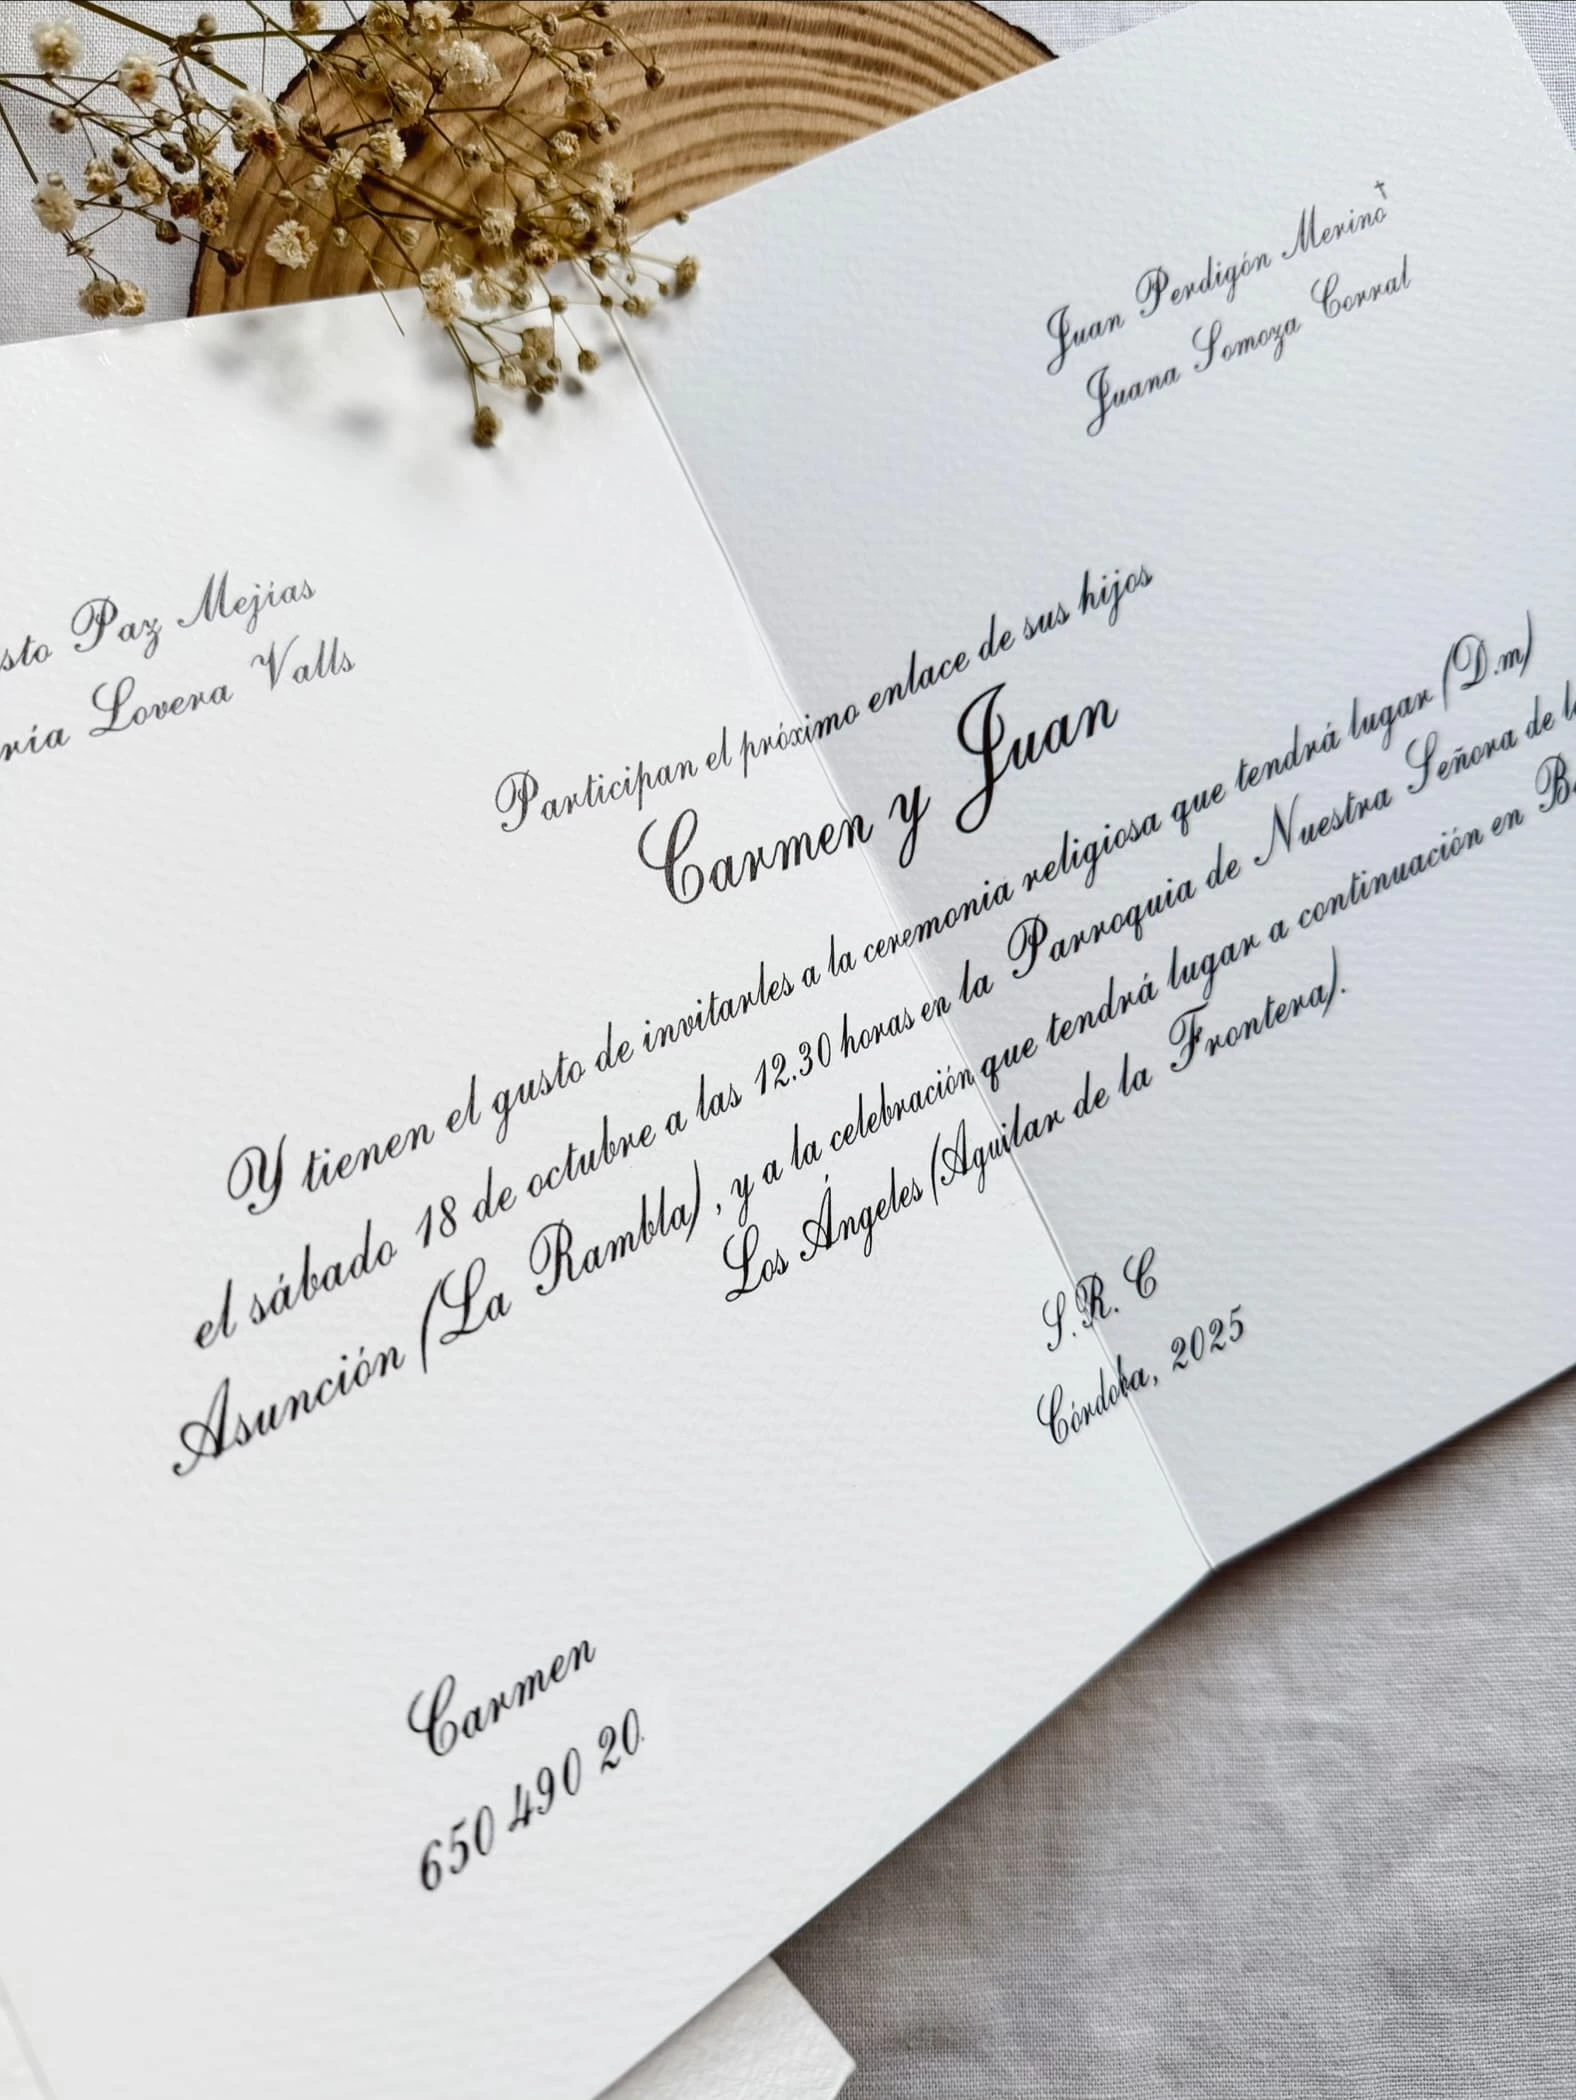 sto Paz Mejías
ría Lovera Valls
Juan Perdigón Merino†
Juana Somoza Corral
Participan el próximo enlace de sus hijos
Carmen y Juan
Y tienen el gusto de invitarles a la ceremonia religiosa que tendrá lugar (D.m)
el sábado 18 de octubre a las 12.30 horas en la Parroquia de Nuestra Señora de la
Asunción (La Rambla), y a la celebración que tendrá lugar a continuación en
Los Ángeles (Aguilar de la Frontera).
S.R.C
Córdoba, 2025
Carmen
650 490 20